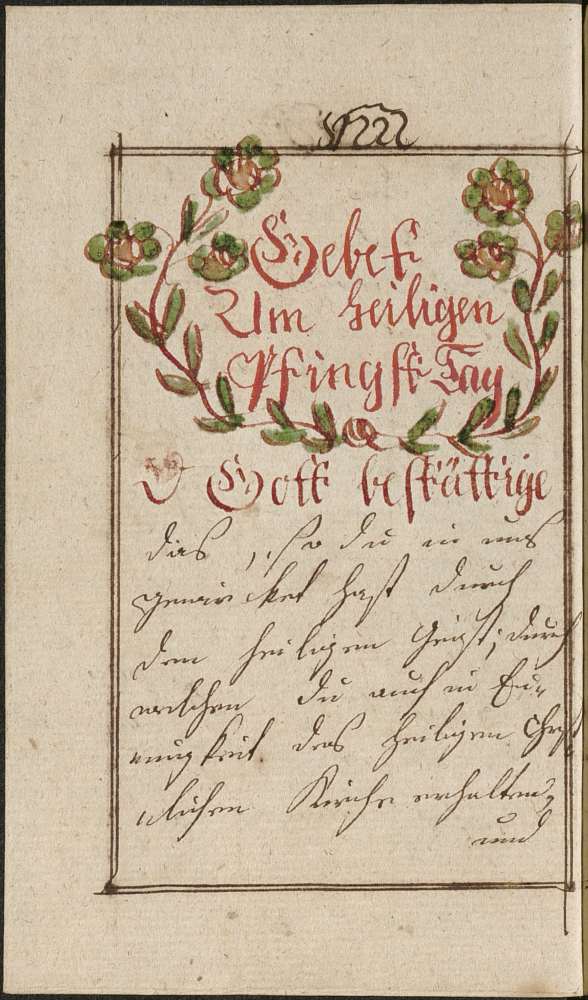 Gebett
Am heiligen
Pfingst Tag
O Gott bestättige
das, so du in uns
gewircket hast durch
den heiligen Geist; durch
welchen du auch in Ei-
nigkeit des heiligen Christ
lichen Kirche erhalten,
und